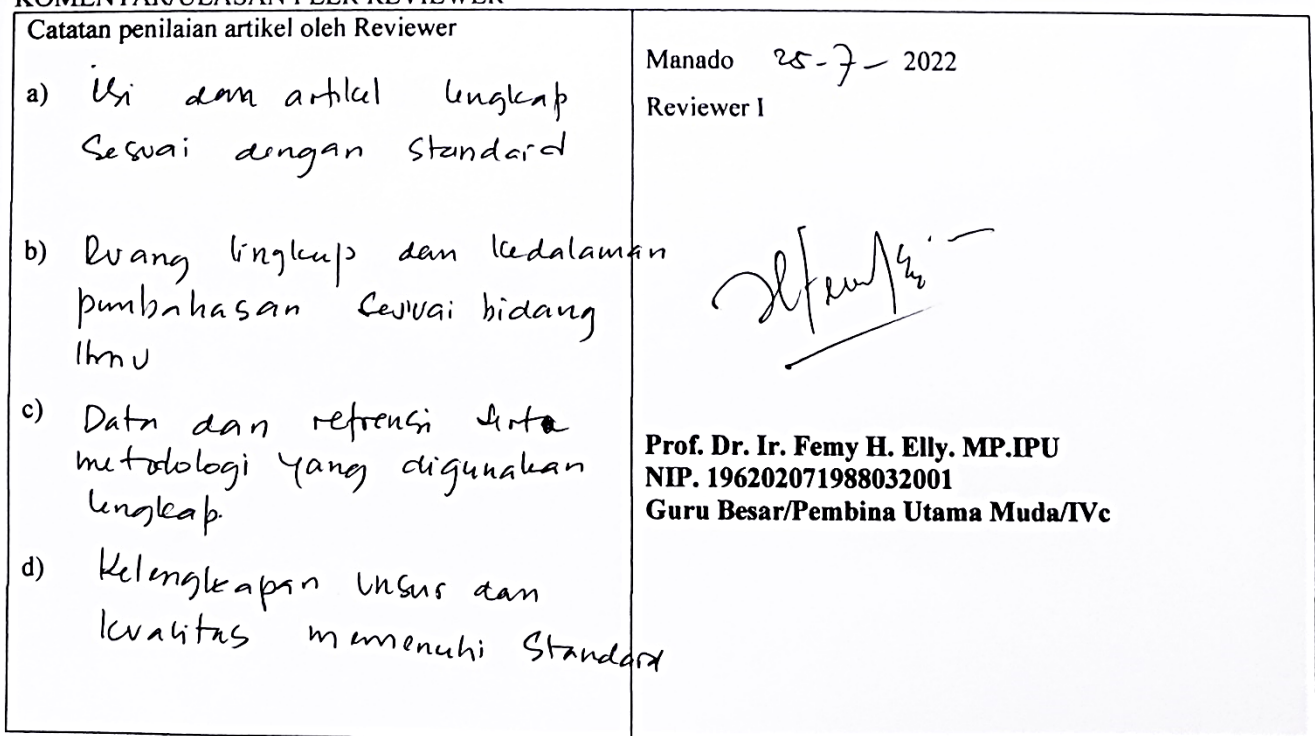 KOMENTAR/ULASAN PEER REVIEWER
Catatan penilaian artikel oleh Reviewer
a) Isi dan artikel lengkap
Sesuai dengan Standard
b) Ruang lingkup dan kedalaman
pembahasan sesuai bidang
Ilmu
c) Data dan refrensi serta
metodologi yang digunakan
lengkap.
d) Kelengkapan unsur dan
kualitas memenuhi Standard
Manado 25-7- 2022
Reviewer I
Prof. Dr. Ir. Femy H. Elly. MP.IPU
NIP. 196202071988032001
Guru Besar/Pembina Utama Muda/IVc